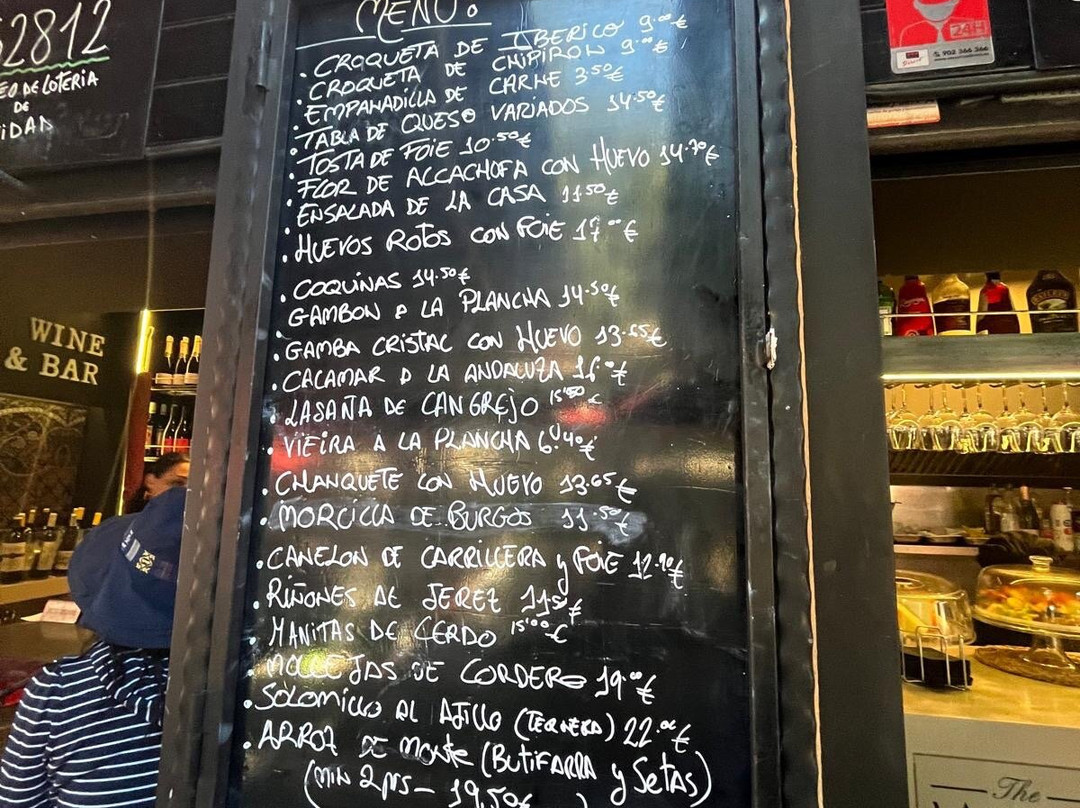 MENU.
. CROQUETA DE IBERICO 9.00€
. CROQUETA DE CHIPIRON 9.00€
. EMPANADILLA DE CARNE 3.50€
. TABLA DE QUESO VARIADOS 14.50€
. TOSTA DE FOIE 10.50€
. FLOR DE ALCACHOFA CON HUEVO 14.70€
. ENSALADA DE LA CASA 11.50€
. HUEVOS ROTOS CON FOIE 17.00€
. COQUINAS 14.50€
GAMBON A LA PLANCHA 14.50€
. GAMBA CRISTAL CON HUEVO 13.65€
. CALAMAR A LA ANDALUZA
. LASAÑA DE CANGREJO 15'50€
. VIEIRA A LA PLANCHA 6.40€
. CHANQUETE CON HUEVO 13.65€
. MORCILLA DE BURGOS 11.50€
. CANELON DE CARRILLERA y FOIE 12.90€
. RIÑONES AL JEREZ
. MANITAS DE CERDO 15'00€
. MOLLEJAS DE CORDERO 19.00€
. SOLOMILLO AL AJILLO (TERNERA) 22.00€
. ARROZ DE MONTE (BUTIFARRA y SETAS)
(MIN 2 PRS - 19,50€ )
2812
DE LOTERIA
DE
WINE
& BAR
24H
902 366 366
The